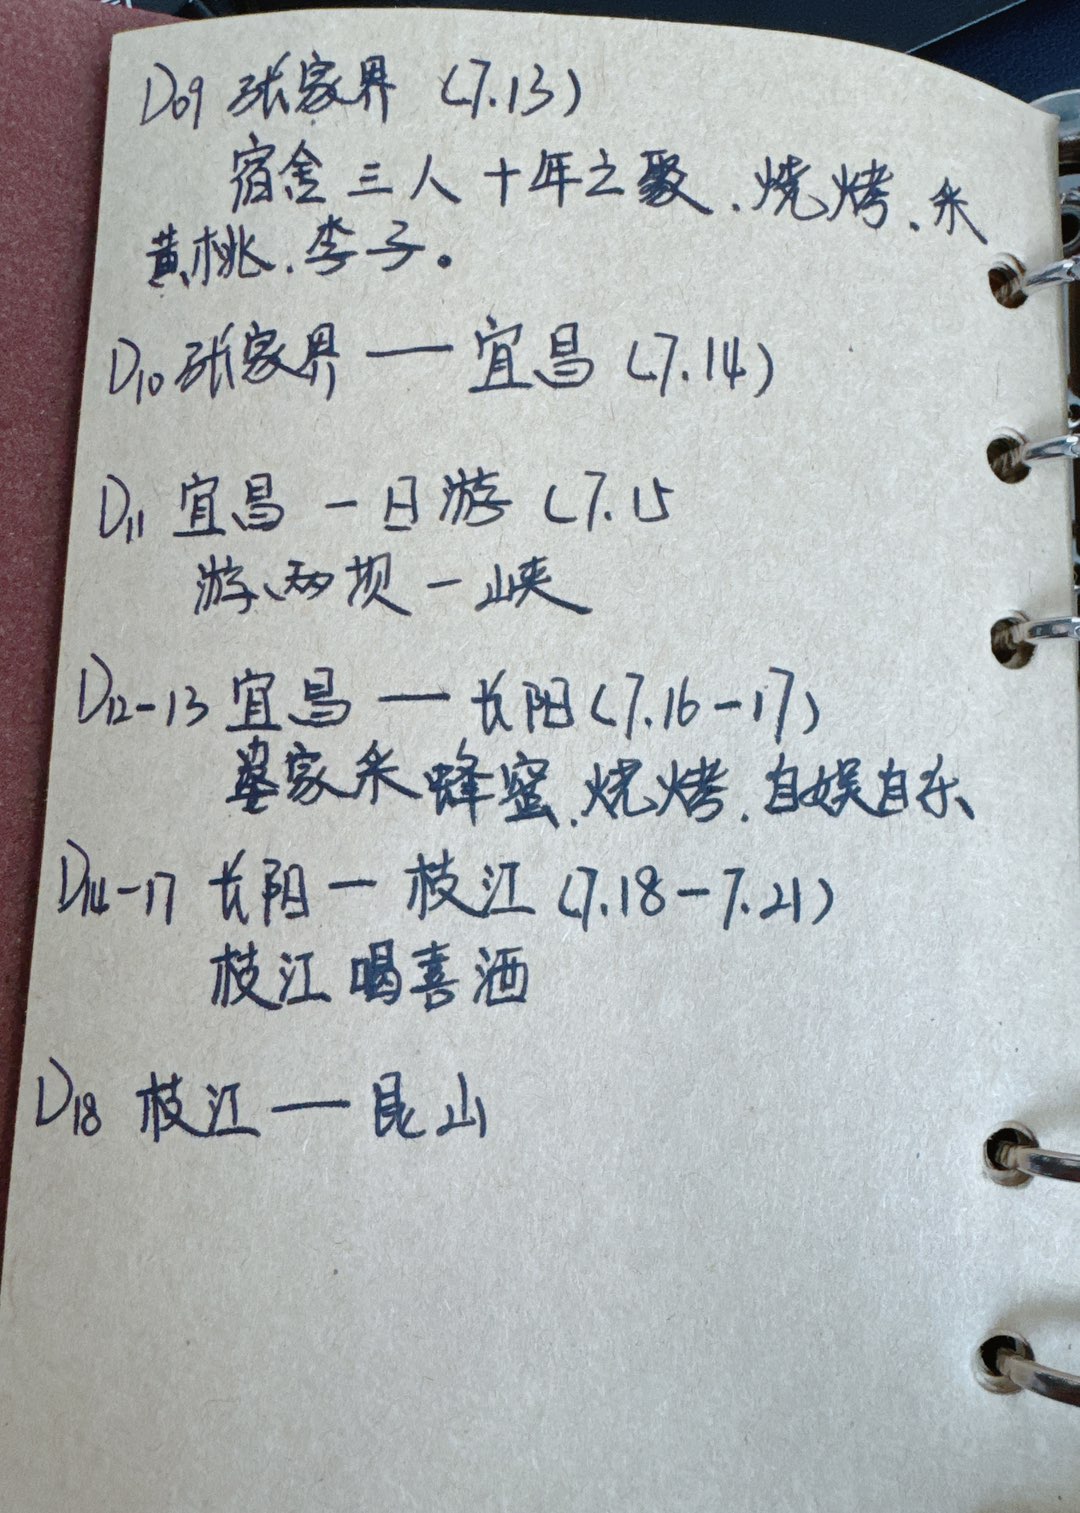 D09 张家界 (7.13)
宿舍三人十年之聚、烧烤、采
黄桃、李子。
D10 张家界 — 宜昌 (7.14)
D11 宜昌一日游 (7.15
游、两坝一峡
D12-13 宜昌 — 长阳 (7.16-17)
家采蜂蜜、烧烤、自娱自乐
D14-17 长阳 — 枝江 (7.18-7.21)
枝江喝喜酒
D18 枝江 — 昆山